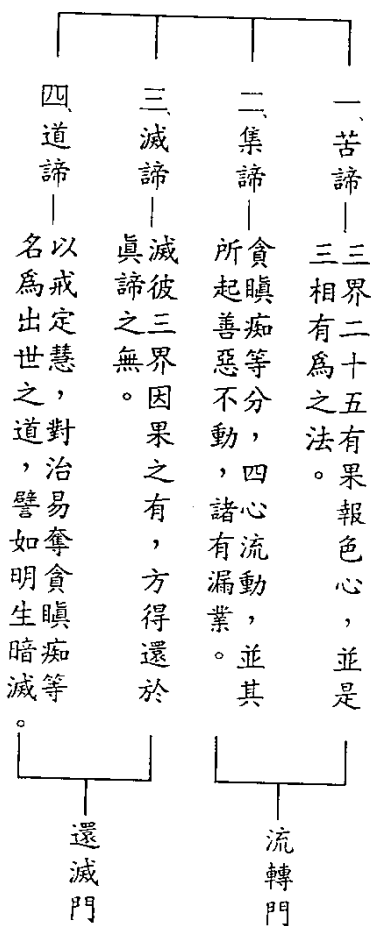 一、苦諦
三界二十五有果報色心，並是
三相有為之法。
二、集諦
貪瞋痴等分，四心流動，並其
所起善惡不動，諸有漏業。
三、滅諦
滅彼三界因果之有，方得還於
眞諦之無。
四、道諦
以戒定慧，對治易奪貪瞋痴等
名爲出世之道，譬如明生暗滅。
流轉門
還滅門